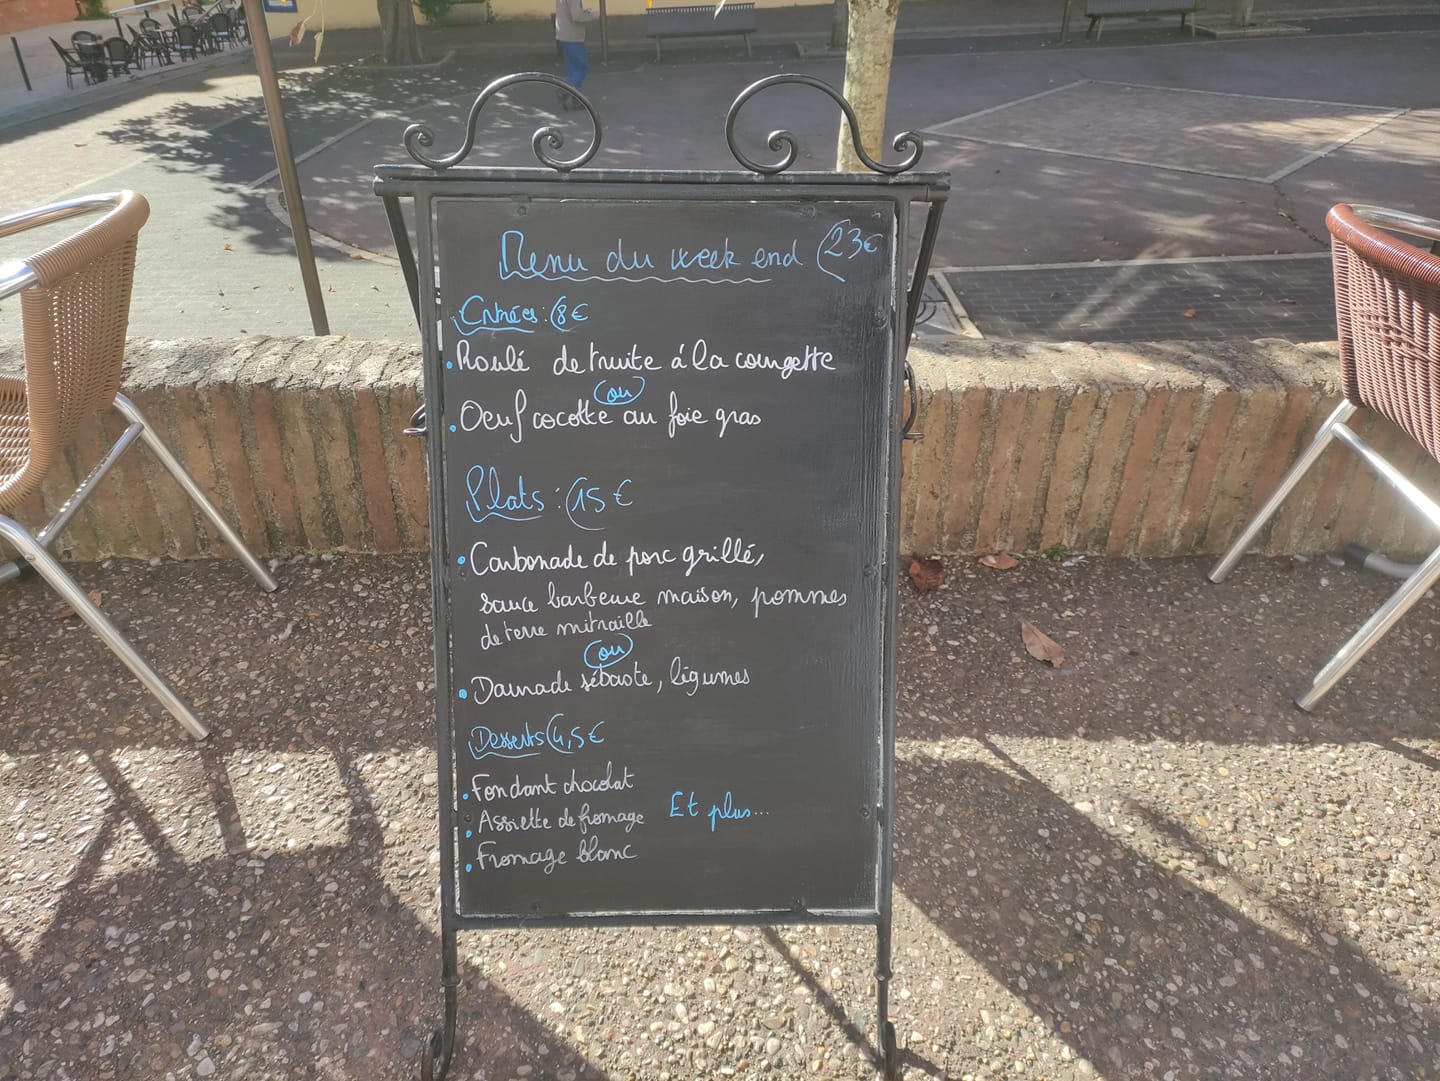 Menu du week end (23€
Entrées : (8€
. Roulé de truite á la courgette
ou
. Oeuf cocotte au foie gras
Plats : (15€
. Carbonade de porc grillé,
sauce barbecue maison, pommes
de terre mitraille
ou
. Daurade sébaste, légumes
Desserts (4,5€
. Fondant chocolat
. Assiette de fromage Et plus...
. Fromage blanc